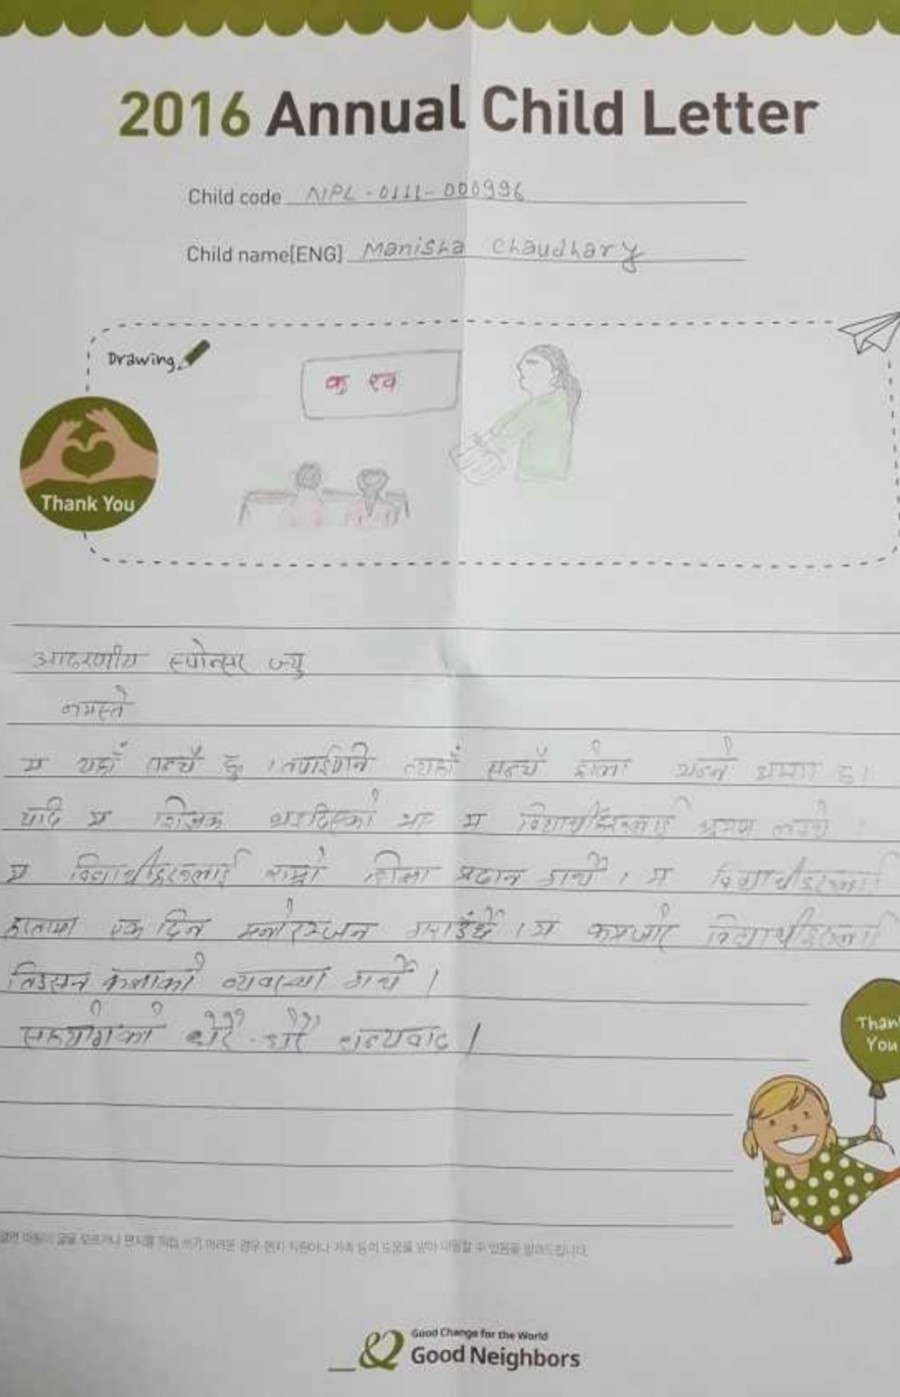 2016 Annual Child Letter
Child code NPL-0111-000996
Child name[ENG] Manisha Chaudhary
Drawing
क ख
Thank You
आदरणीय स्पोन्सर ज्यु
नमस्ते
म यहाँ सन्चै छु । तपाईपनि त्यहाँ सन्चै होला भन्ने आशा छ।
यदि म शिक्षक भइदिएको भए म विद्यार्थीहरुलाई भ्रमण लग्थे ।
म विद्यार्थीहरुलाई राम्रो शिक्षा प्रदान गर्थे । म विद्यार्थीहरुलाई
हप्तामा एक दिन मनोरन्जन गराउँथे । म कमजोर विद्यार्थीहरुलाई
टिउसन कक्षाको व्यवस्था गर्थे ।
सहयोगको धेरै-धेरै धन्यवाद ।
Thank
You
쓸 수 있음을 알려드립니다.
Good Change for the World
Good Neighbors